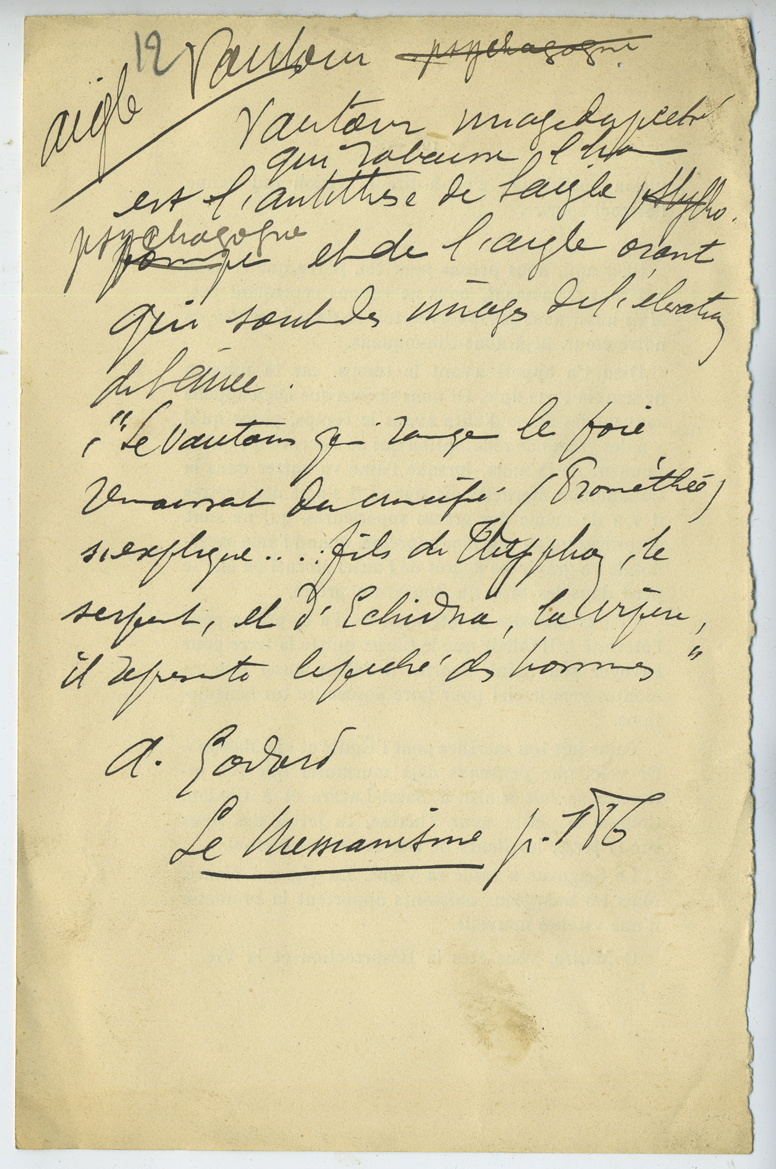 12
aigle Vautour psychagogue
Vautour image du péché
qui rabaisse l'homme
est l'antithèse de l'aigle psycho.
psychagogue
pompe et de l'aigle orant
qui sont des images de l'élévation
de l'âme.
"Le vautour qui ronge le foie
renaissant du crucifié (Prométhée)
s'explique .... : fils de Thyphon, le
serpent, et d'Echidna, la vipère,
il représente le péché des hommes"
A. Godard
Le Messianisme p. 186